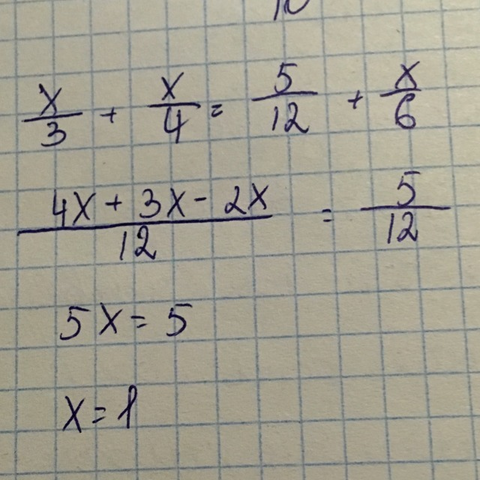 x/3 + x/4 = 5/12 + x/6
4x + 3x - 2x / 12 = 5/12
5x = 5
x = 1